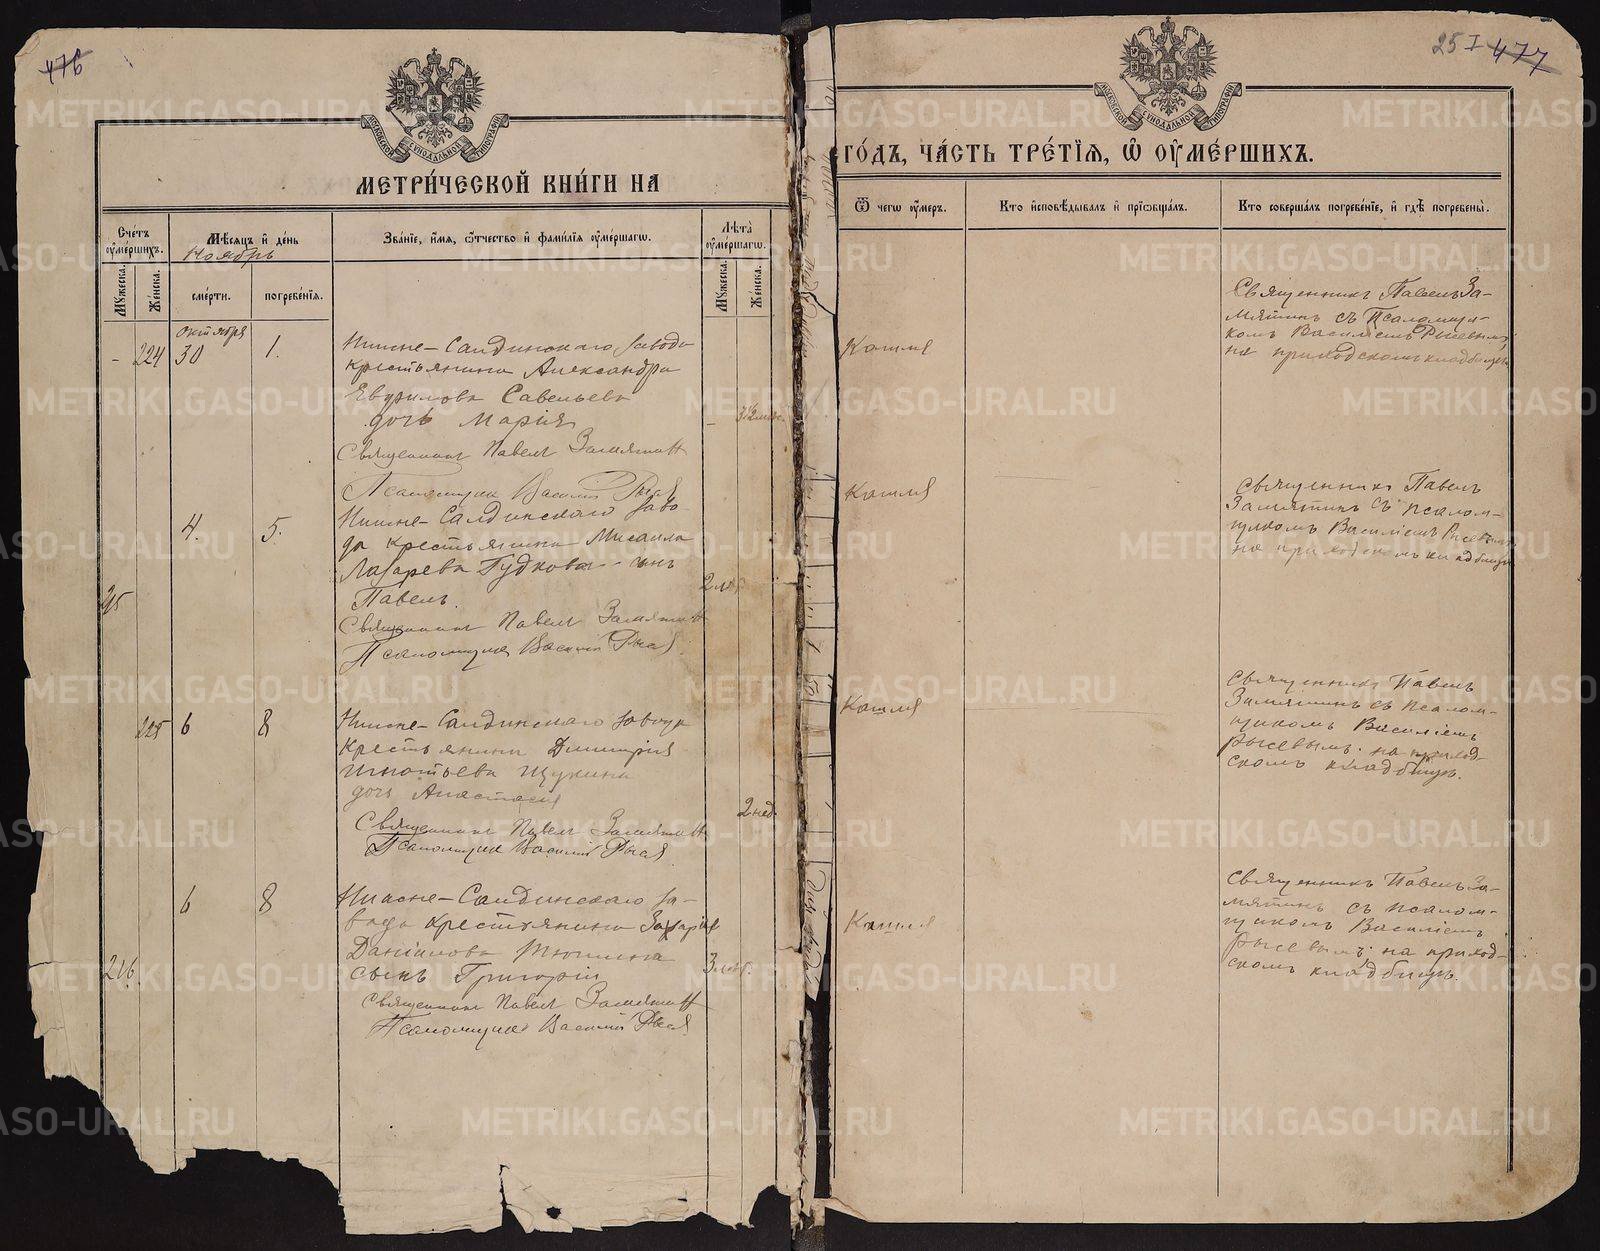 476
МЕТРИ́ЧЕСКОЙ КНИ́ГИ НА
Счéтъ ᲂу҆мéршихъ.
Мѣсяцъ, и҆ день
Ноябрь
Звáнїе, и҆́мя, ѻ҆́тчество и҆ фамилїя ᲂу҆мéршагѡ.
Лѣта ᲂу҆мéршагѡ.
Мꙋжеска.
Женска.
смéрти.
погребéнїя.
Мꙋжеска.
Женска.
октября
- 224 30 1.
Нижне-Салдинскаго завода
крестьянина Александра
Савельева
дочь Марія
-
Священникъ Павелъ Замятин
Псаломщик Василій
4. 5.
Нижне-Салдинскаго заво-
да крестьянина Михаила
Лазарева Гудкова сынъ
Павелъ.
2
Священникъ Павелъ Замятин
Псаломщик Василій
225 6 8
Нижне-Салдинскаго завода
крестьянина Димитрія
Игнатьева Щукина
дочь Анастасія
2 нед.
Священникъ Павелъ Замятин
Псаломщик Василій
6 8
Нижне-Салдинскаго за-
вода крестьянина Захарія
Даніилова
сынъ Григорій
3
Священникъ Павелъ Замятин
Псаломщик Василій
25 I 477
ГО́ДЪ, ЧА́СТЬ ТРЕ́ТЇЯ, Ѡ҆ ОУ҆МЕ́РШИХЪ.
Ѿ чегѡ ᲂу҆́меръ.
Кто и҆сповѣдывалъ и҆ прїѡбщалъ.
Кто совершáлъ погребéнїе, и҆ гдѣ погребены̀.
Кашля
Священникъ Павелъ За-
мятинъ съ Псаломщи-
комъ Василіемъ Рысевымъ
на приходскомъ кладбищѣ
Кашля
Священникъ Павелъ
Замятинъ съ псалом-
щикомъ Василіемъ Рысевымъ
на приходскомъ кладбищѣ
Кашля
Священникъ Павелъ
Замятинъ съ псалом-
щикомъ Василіемъ
Рысевымъ на приход-
скомъ кладбищѣ.
Кашля
Священникъ Павелъ За-
мятинъ съ псалом-
щикомъ Василіемъ
Рысевымъ на приход-
скомъ кладбищѣ.
METRIKI.GASO-URAL.RU